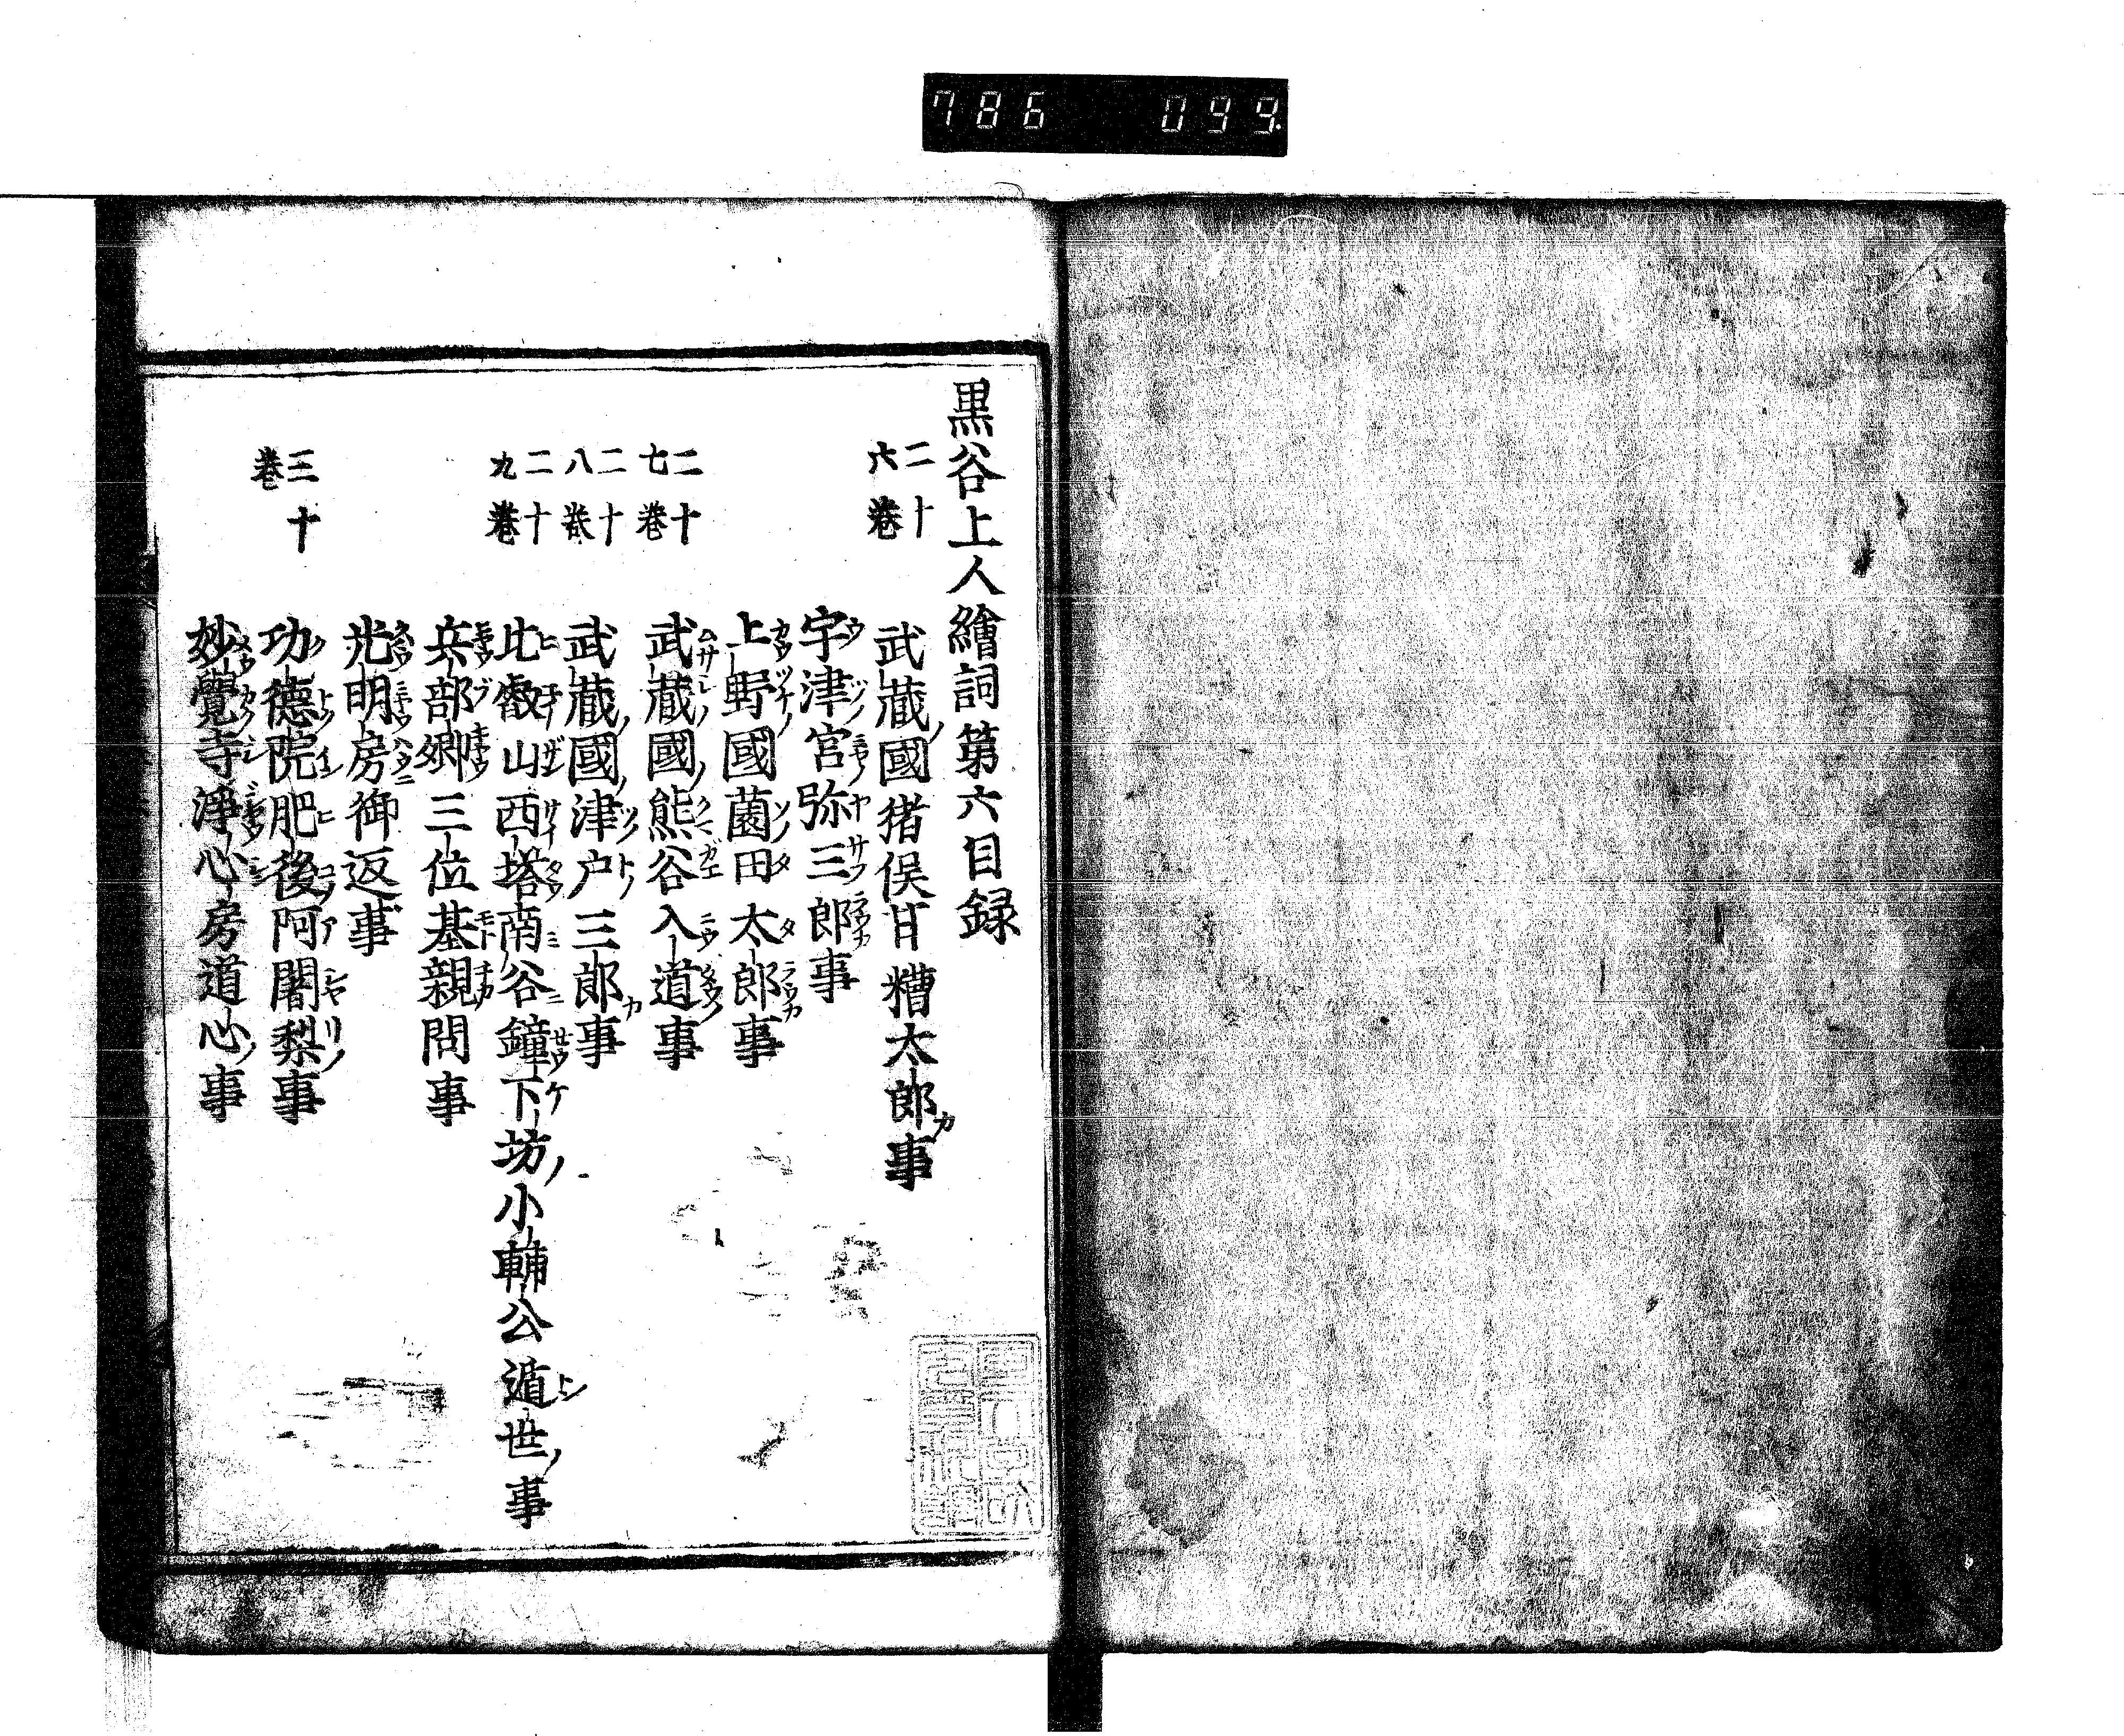 786 099
黒谷上人繪詞第六目録
二十六巻
武蔵ノ國猪俣甘糟太郎カ事
宇津宮弥三郎事
上野國薗田太郎事
二十七巻
武蔵國熊谷入道事
二十八巻
武蔵ノ國津戸三郎カ事
二十九巻
比叡山西塔南谷鐘下坊ノ小輔公遁世ノ事
兵部卿三位基親問事
光明房御返事
三十巻
功德院肥後阿闍梨事
妙覺寺淨心房道心ノ事